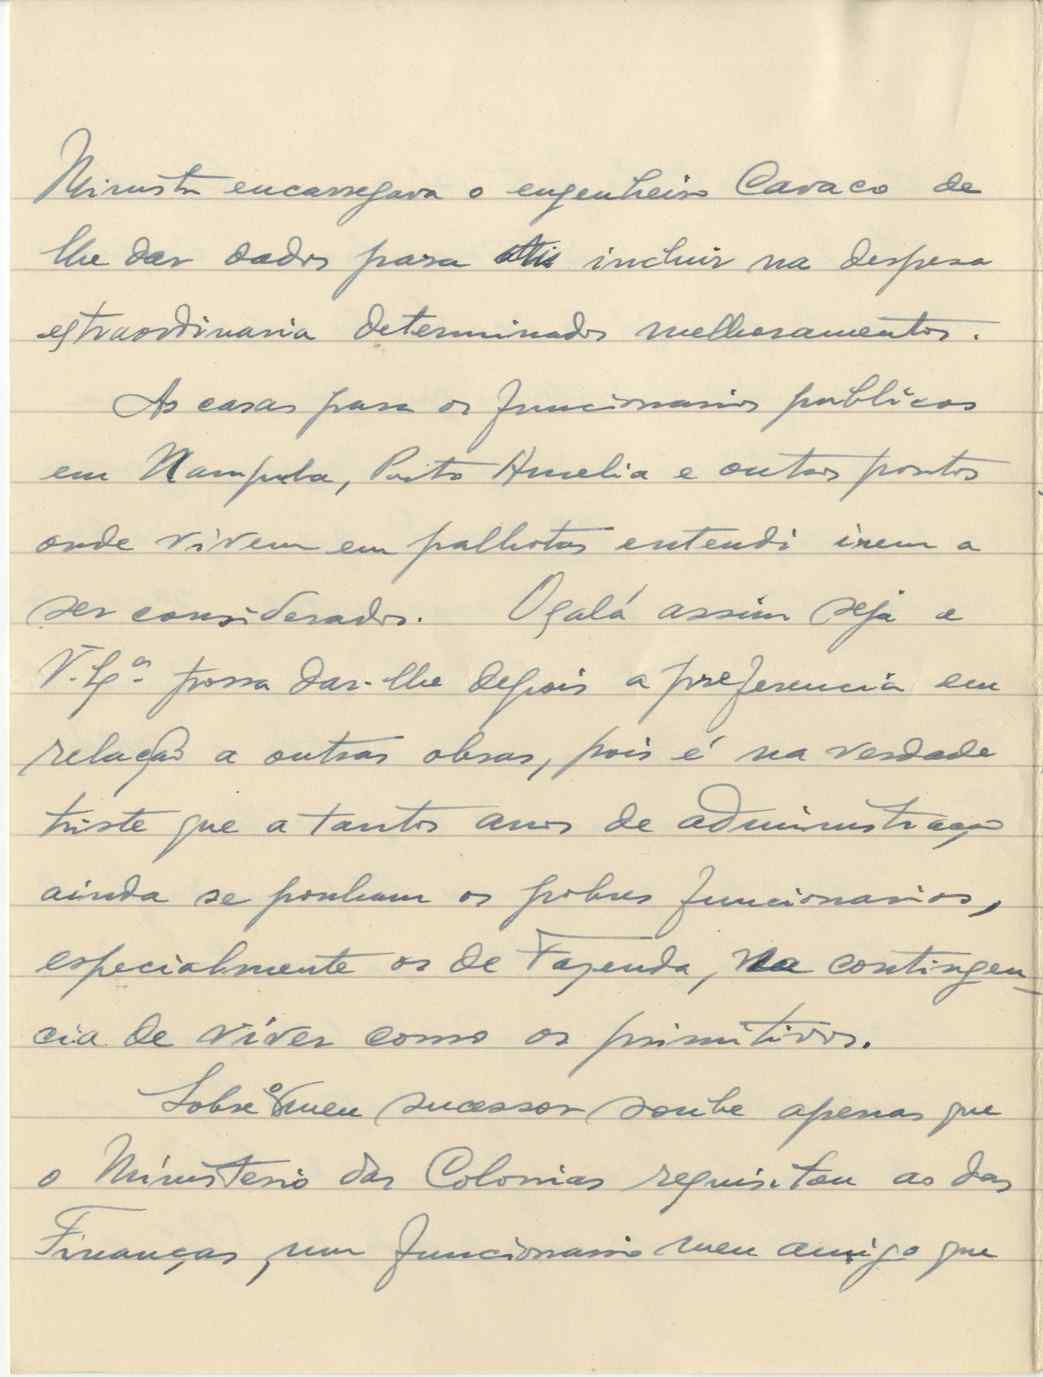 Ministro encarregara o engenheiro Cavaco de
lhe dar dados para incluir na despesa
extraordinaria determinados melhoramentos.
As casas para os funcionarios publicos
em Nampula, Porto Amelia e outros pontos
onde vivem em palhotas entendi irem a
ser considerados. Oxalá assim seja e
V. Exª. possa dar-lhe depois a preferencia em
relação a outras obras, pois é na verdade
triste que a tantos anos de administração
ainda se ponham os pobres funcionarios,
especialmente os de Fazenda, na contingen-
cia de viver como os primitivos.
Sobre o meu sucessor soube apenas que
o Ministerio das Colonias requisitou ao das
Finanças, um funcionario meu amigo que